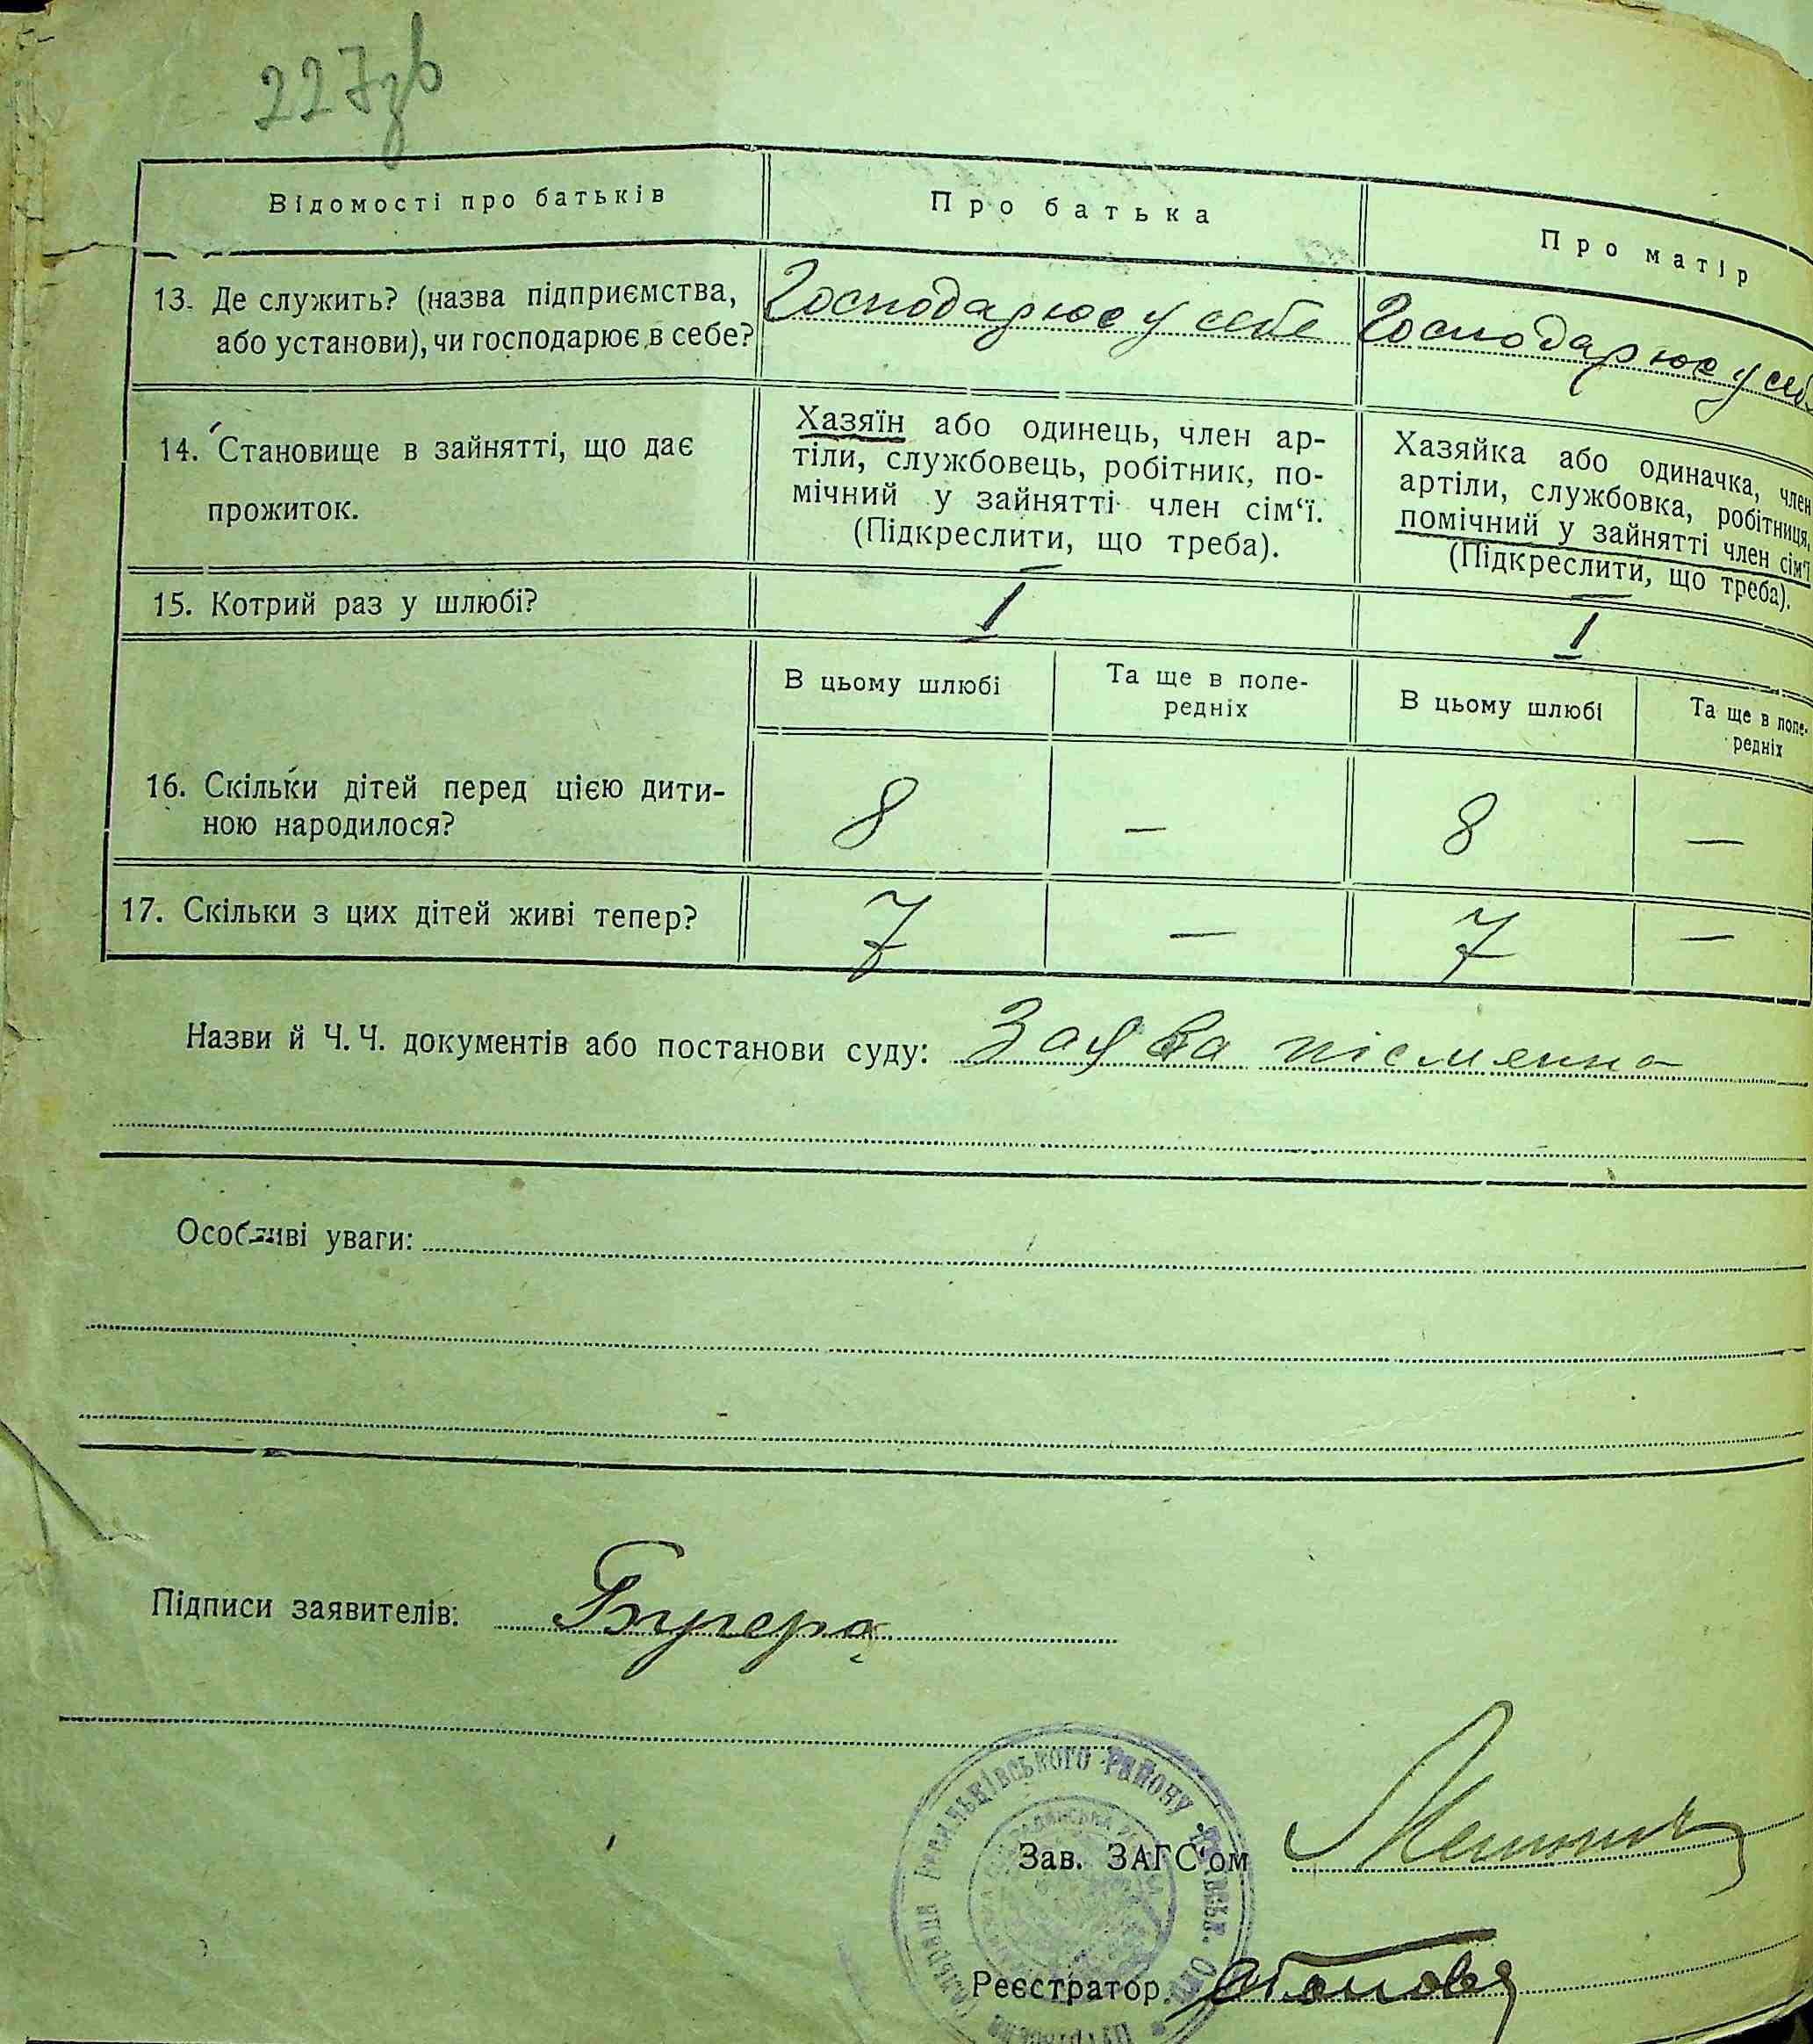 227зв
Відомості про батьків
Про батька
Про матір
13. Де служить? (назва підприємства,
або установи), чи господарює в себе?
Господарює у себе
Господарює у себ
14. Становище в зайнятті, що дає
прожиток.
Хазяїн або одинець, член ар-
тіли, службовець, робітник, по-
мічний у зайнятті член сім‘ї.
(Підкреслити, що треба).
Хазяйка або одиначка, член
артіли, службовка, робітниця,
помічний у зайнятті член сім‘ї
(Підкреслити, що треба).
15. Котрий раз у шлюбі?
I
I
В цьому шлюбі
Та ще в попе-
редніх
В цьому шлюбі
Та ще в попе-
редніх
16. Скільки дітей перед цією дити-
ною народилося?
8
—
8
—
17. Скільки з цих дітей живі тепер?
7
—
7
—
Назви й Ч. Ч. документів або постанови суду: Заява пісменна
Особливі уваги:
Підписи заявителів: Бугера
РАЙОНУ
Зав. ЗАГС‘ом
Реєстратор.